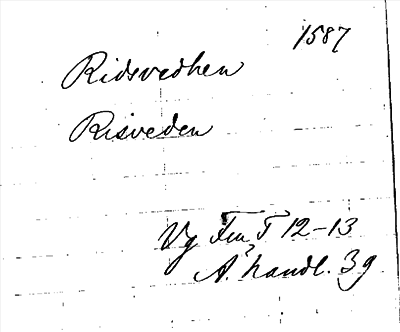 1587
Ridsvedhen
Risveden
Vg 12-13
Ä. handl. 39